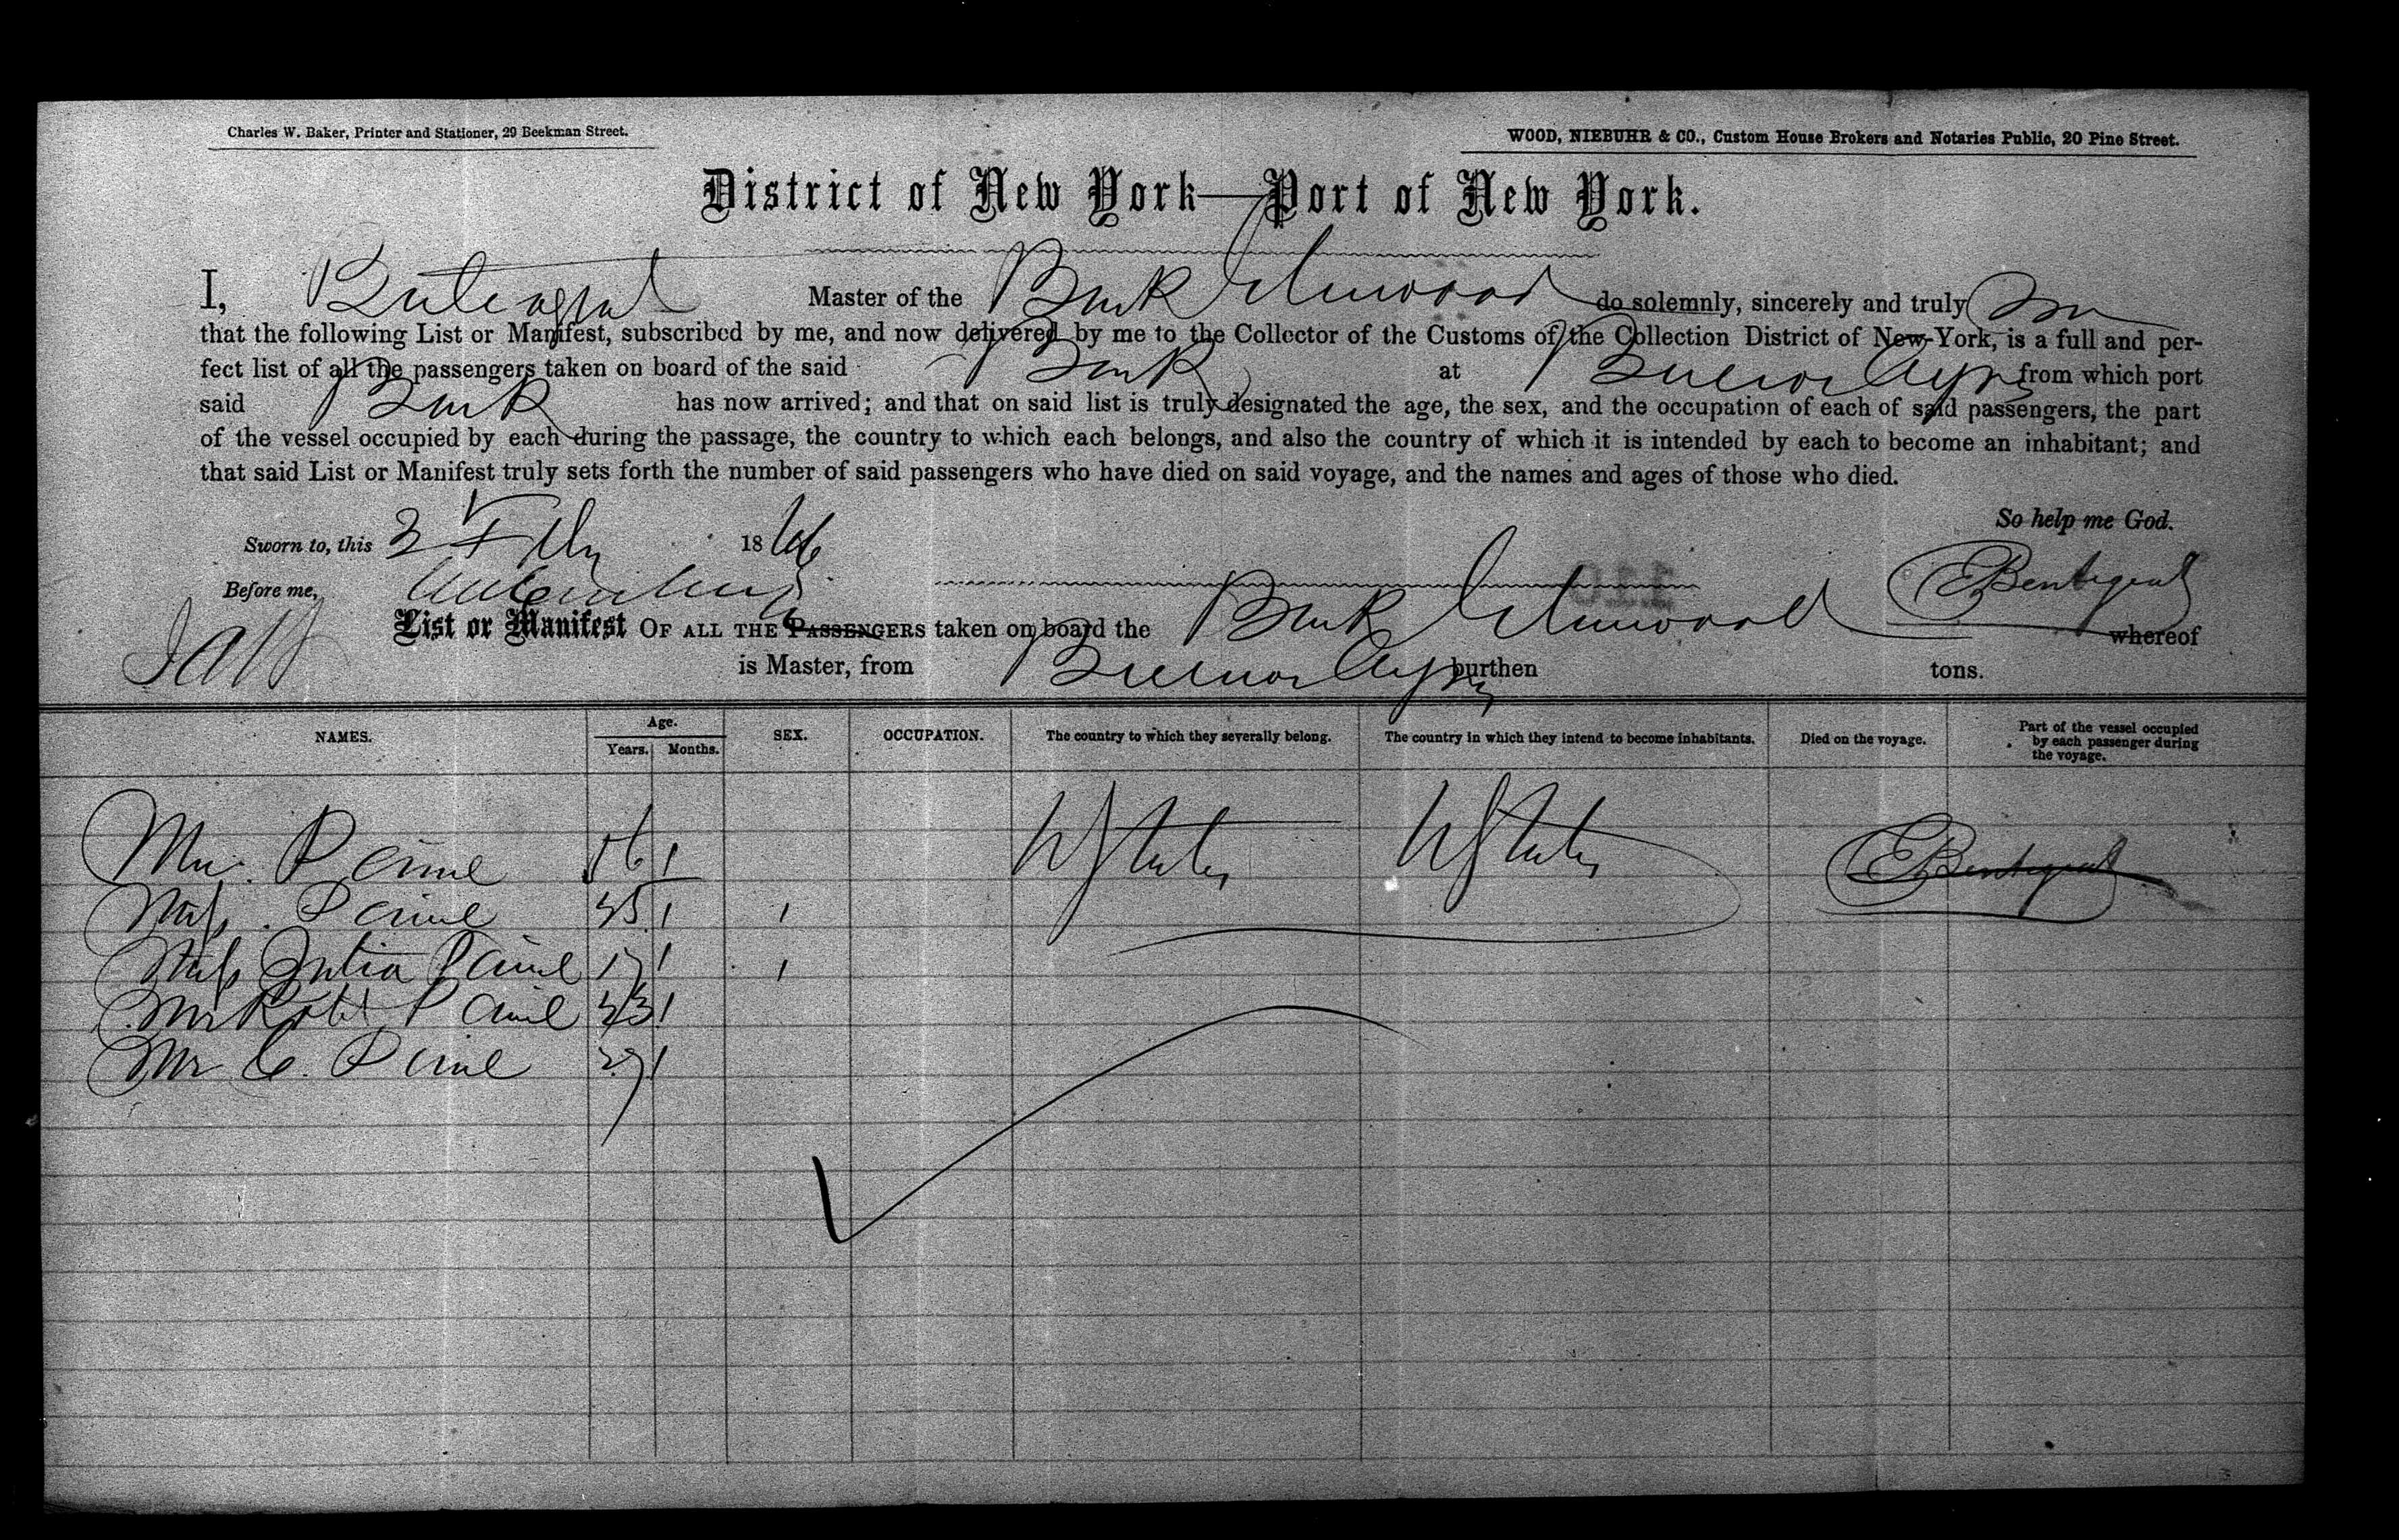 Charles W. Baker, Printer and Stationer, 29 Beekman Street.
WOOD, NIEBUHR & CO., Custom House Brokers and Notaries Public, 20 Pine Street.
District of New York—Port of New York.
I, Master of the Bark Elmwood do solemnly, sincerely and truly
that the following List or Manifest, subscribed by me, and now delivered by me to the Collector of the Customs of the Collection District of New-York, is a full and per-
fect list of all the passengers taken on board of the said Bark at Buenos Ayres from which port
said Bark has now arrived; and that on said list is truly designated the age, the sex, and the occupation of each of said passengers, the part
of the vessel occupied by each during the passage, the country to which each belongs, and also the country of which it is intended by each to become an inhabitant; and
that said List or Manifest truly sets forth the number of said passengers who have died on said voyage, and the names and ages of those who died.
So help me God.
Sworn to, this 2 1866
Before me,
List or Manifest OF ALL THE PASSENGERS taken on board the Bark Elmwood whereof
is Master, from Buenos Ayres burthen tons.
NAMES. Age. Years. Months. SEX. OCCUPATION. The country to which they severally belong. The country in which they intend to become inhabitants. Died on the voyage. Part of the vessel occupied by each passenger during the voyage.
Mr. Paine 56 1 U States U States
Paine 1 1
Miss Julia Paine 17 1 1
Mr Robt Paine 1
Mr C. Paine 27 1